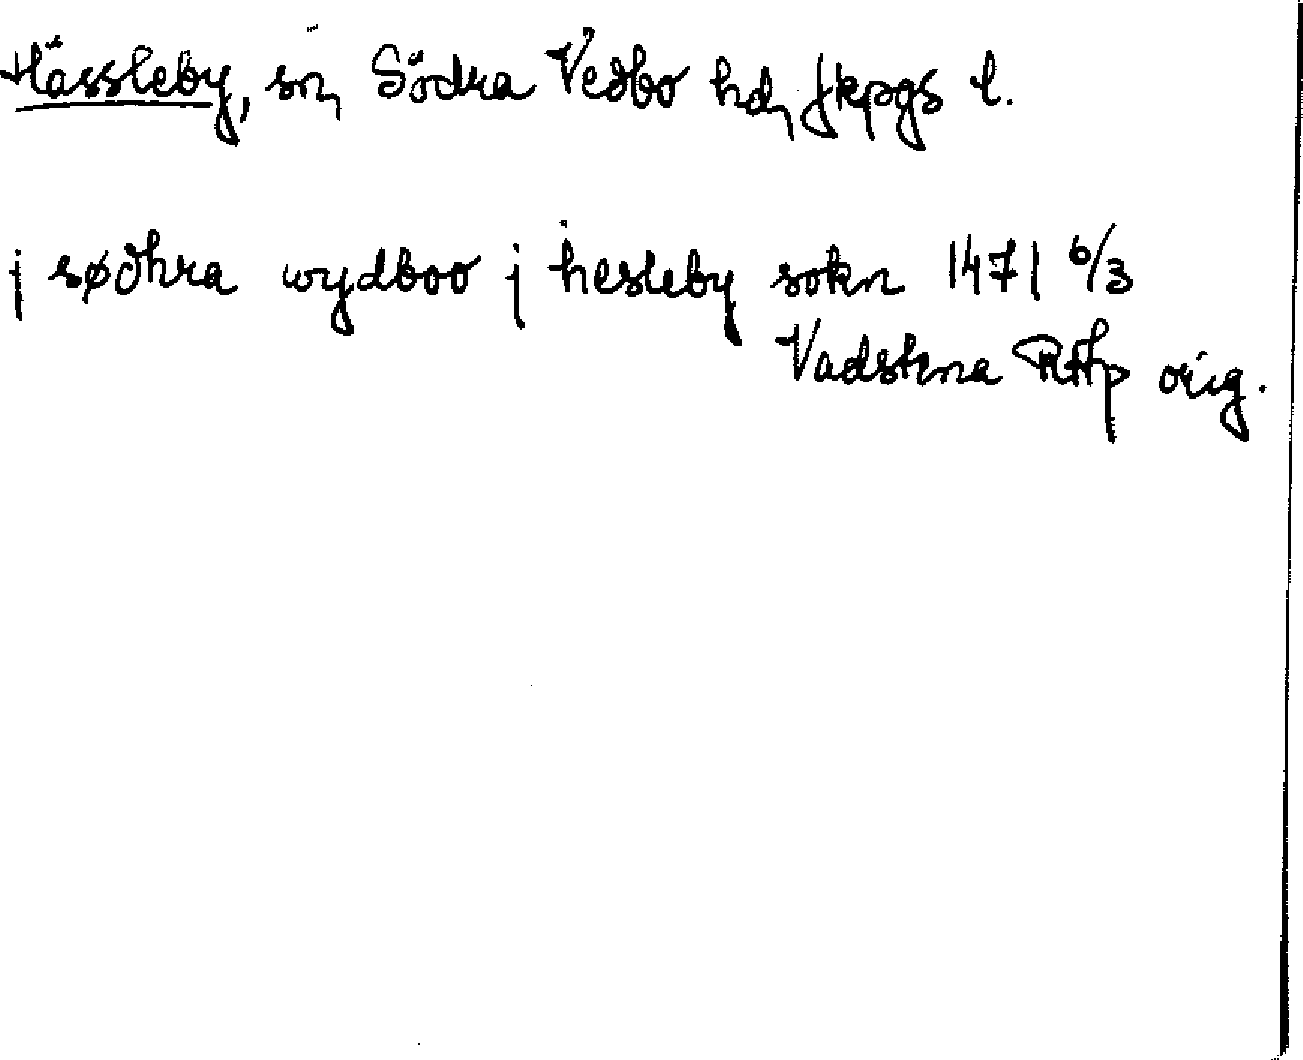 Hässleby, sn, Södra Vedbo hd, Jkpgs l.
j søðhra wydboo j hesleby sokn 1471 6/3
Vadstena RAp orig.